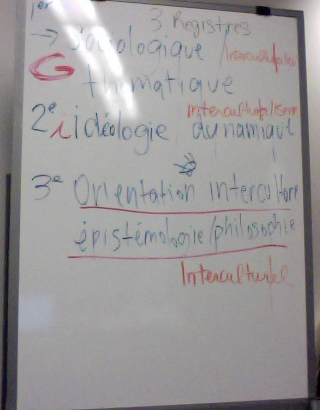 1er 3 Registres
→ Sociologique /
G thématique
interculturalisme
2e i idéologie dynamique
3e Orientation interculture
épistémologie/philosophie
Interculturel